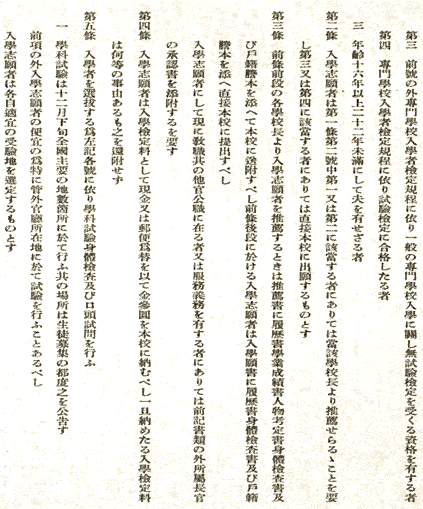 第三　前號の外專門學校入學者檢定規程に依り一般の專門學校入學に關し無試驗檢定を受くる資格を有する者
第四　專門學校入學者檢定規程に依り試驗檢定に合格したる者
三　年齡十六年以上二十二年未滿にして夫を有せざる者
第二條　入學志願者は第一條第二號中第一又は第二に該當する者にありては當該學校長より推薦せらるゝことを要
し第三又は第四に該當する者にありては直接本校に出願するものとす
第三條　前條前段の各學校長より入學志願者を推薦するときは推薦書に履歷書學業成績書人物考定書身體檢查書及
び戶籍謄本を添へて本校に送附すべし前條後段に於ける入學志願者は入學願書に履歷書身體檢查書及び戶籍
謄本を添へ直接本校に提出すべし
入學志願者にして現に敎職其の他官公職に在る者又は服務義務を有する者にありては前記書類の外所屬長官
の承認書を添附するを要す
第四條　入學志願者は入學檢定料として現金又は郵便爲替を以て金參圓を本校に納むべし一旦納めたる入學檢定料
は何等の事由あるも之を還附せず
第五條　入學者を選拔する爲左記各號に依り學科試驗身體檢查及び口頭試問を行ふ
一　學科試驗は十二月下旬全國主要の地數箇所に於て行ふ其の場所は生徒募集の都度之を公吿す
前項の外入學志願者の便宜の爲特に管外官廳所在地に於て試驗を行ふことあるべし
入學志願者は各自適宜の受驗地を選定するものとす